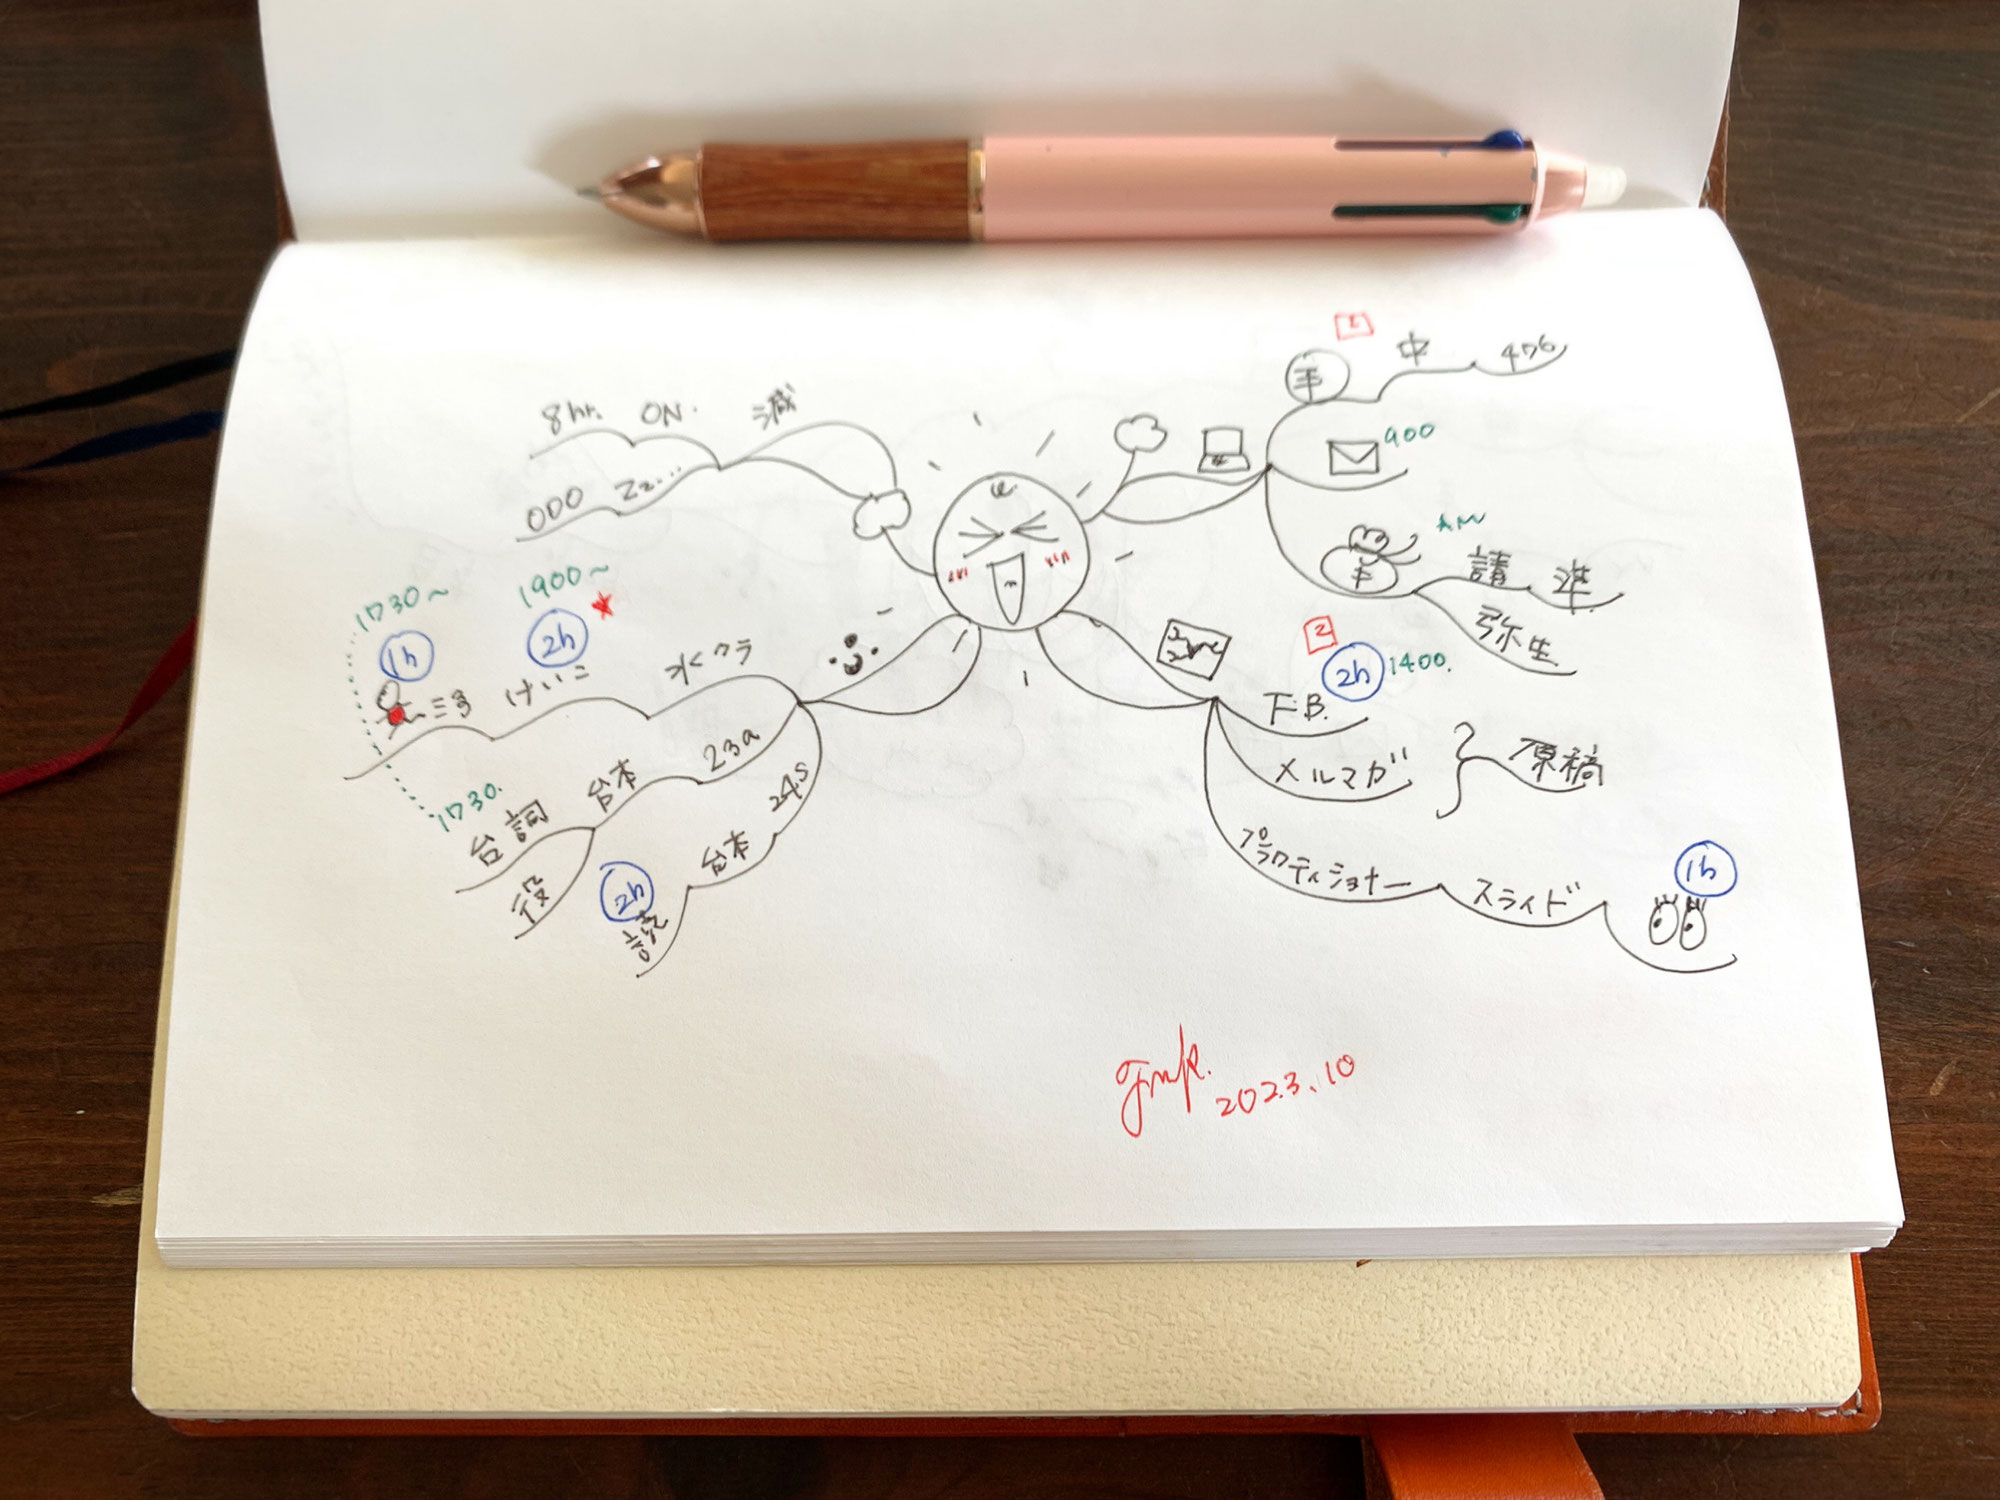 8hr. ON. 減
000 Zz...
1730~
1900~
1h
2h
けいこ
水クラ
23a
台本
台詞
役
1730.
24s
台本
2h
読
手
中
476
900
AM
請 準
弥生
2
2h
1400.
F.B.
メルマガ
原稿
プラクティショナー
スライド
1h
2023.10